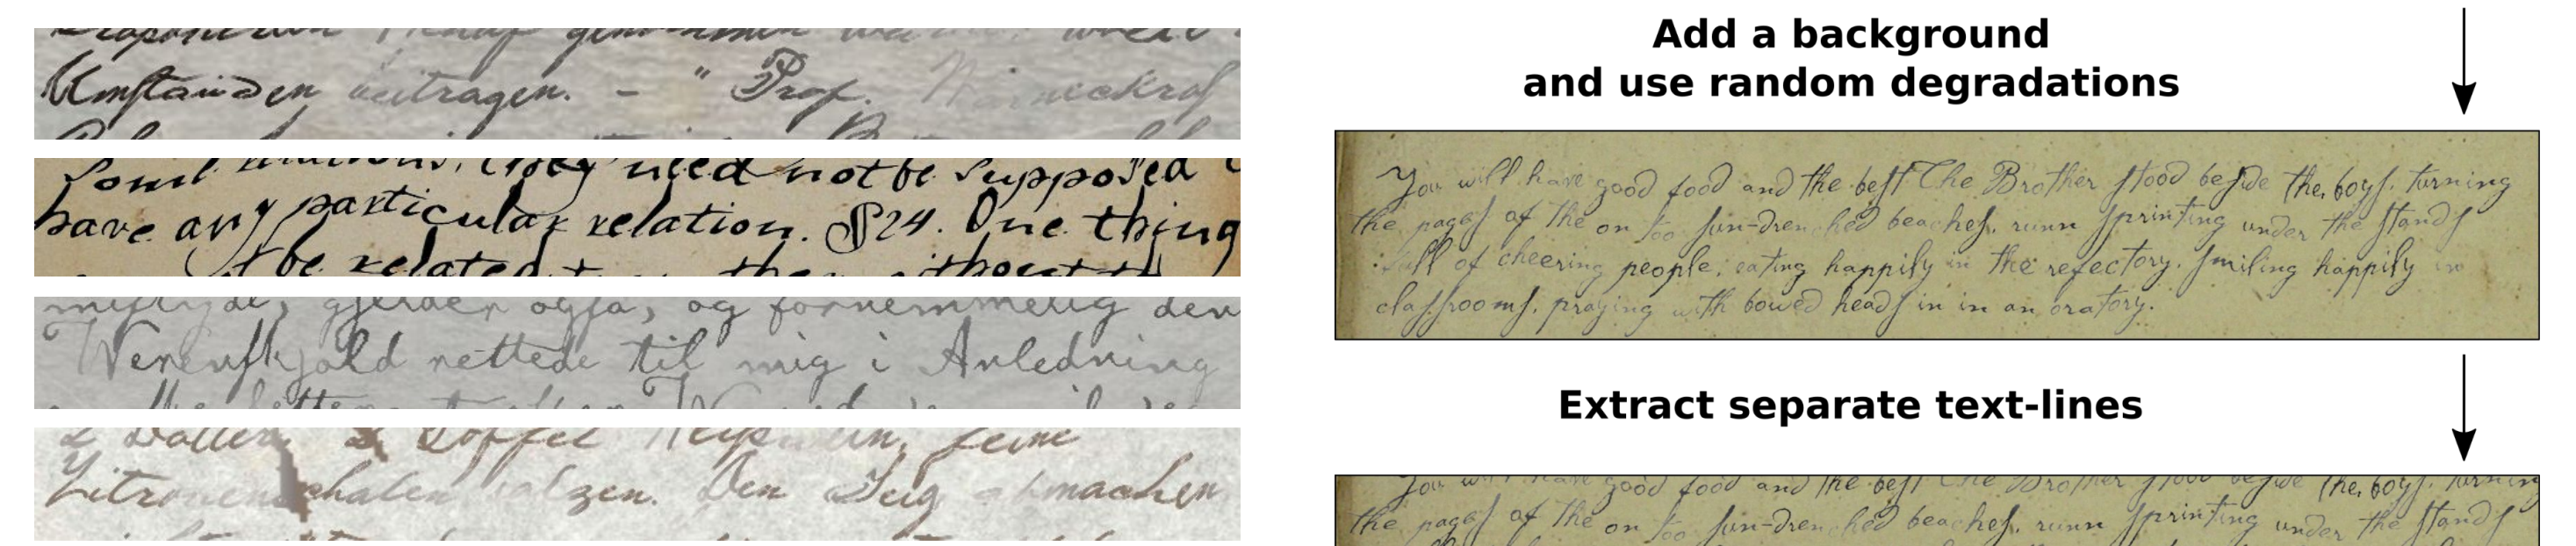 Umstanden beitragen. - " Prof.
some
they need not be supposed
have any particular relation. §24. One thing
og fornemmelig den
Werenskjold rettede til mig i Anledning
2 Dotter, 2 Löffel feine
Zitronenschalen salzen. Den Teig abmachen
Add a background
and use random degradations
You will have good food and the best The Brother stood beside the boys. turning
the pages of the on too sun-drenched beaches. runn sprinting under the stands
full of cheering people, eating happily in the refectory. Smiling happily in
classrooms, praying with bowed heads in in an oratory.
Extract separate text-lines
You will have good food and the best The Brother stood beside the, boys. turning
the pages of the on too sun-drenched beaches. runn sprinting under the stands